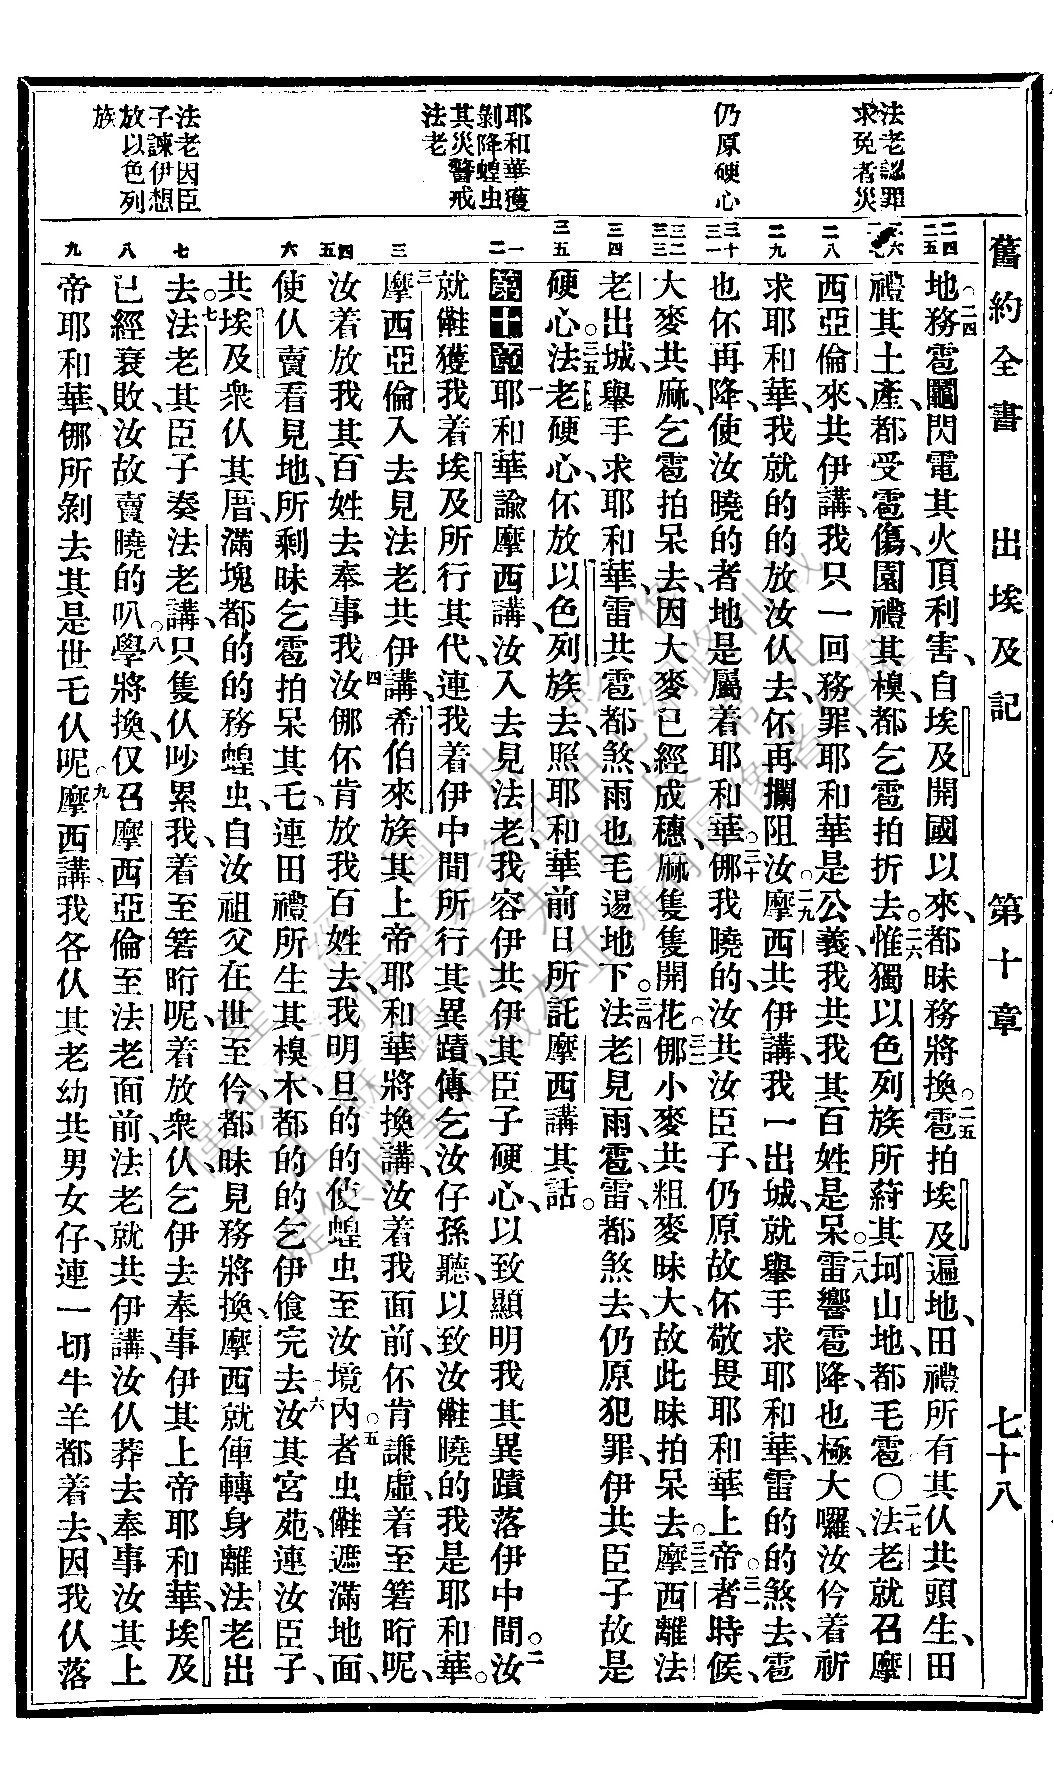 舊約全書 出埃及記 第十章 七十八
法老認罪
求免者災
仍原硬心
耶和華獲
剝降蝗虫
其災警戒
法老
法老因臣
子諫伊想
放以色列
族
地。務雹鬮閃電其火頂利害、自埃及開國以來、都昧務將換。雹拍埃及遍地、田禮所有其仈共頭生、田
禮其土產、都受雹傷、園禮其模、都乞雹拍折去。惟獨以色列族所蒔其坷山地、都毛雹〇法老就召摩
西亞倫來、共伊講、我只一回務罪、耶和華是公義、我共我其百姓是呆。雷響雹降、也極大囉、汝仱着祈
求耶和華、我就的的放汝仈去、伓再攔阻汝。摩西共伊講、我一出城、就舉手求耶和華、雷的的煞去、雹
也伓再降、使汝曉的者地是屬着耶和華。㑚我曉的、汝共汝臣子、仍原故伓敬畏耶和華上帝。者時候、
大麥共麻、乞雹拍呆去、因大麥已經成穗、麻隻隻開花。㑚小麥共粗麥昧大、故此昧拍呆去。摩西離法
老出城、舉手求耶和華、雷共雹都煞、雨也毛遏地下。法老見雨、雹、雷、都煞去、仍原犯罪、伊共臣子故是
硬心。法老硬心、伓放以色列族去、照耶和華前日所託摩西講其話。
第十章 耶和華諭摩西講、汝入去見法老、我容伊共伊其臣子硬心、以致顯明我其異蹟落伊中間。汝
就𣍐獲我着埃及所行其代、連我着伊中間所行其異蹟、傳乞汝仔孫聽、以致汝𣍐曉的我是耶和華。
摩西亞倫入去見法老共伊講、希伯來族其上帝耶和華將換講、汝着我面前、伓肯謙虛、着至箬䀪呢、
汝着放我其百姓去奉事我。汝㑚伓肯放我百姓去、我明旦的的使蝗虫至汝境內。者虫𣍐遮滿地面、
使仈賣看見地、所剩昧乞雹拍呆其毛、連田禮所生其模木、都的的乞伊飡完去。汝其宮苑、連汝臣子、
共埃及衆仈其厝、滿塊都的的務蝗虫、自汝祖父在世至仱、都昧見務將換、摩西就俥轉身離法老出
去。法老其臣子奏法老講、只隻仈吵累我、着至箬䀪呢、着放衆仈、乞伊去奉事伊其上帝耶和華、埃及
已經衰敗、汝故賣曉的叭。學將換、仅召摩西亞倫至法老面前、法老就共伊講、汝仈莽去奉事汝其上
帝耶和華、㑚所剝去其是世毛仈呢。摩西講、我各仈其老幼共男女仔、連一切牛羊都着去、因我仈落